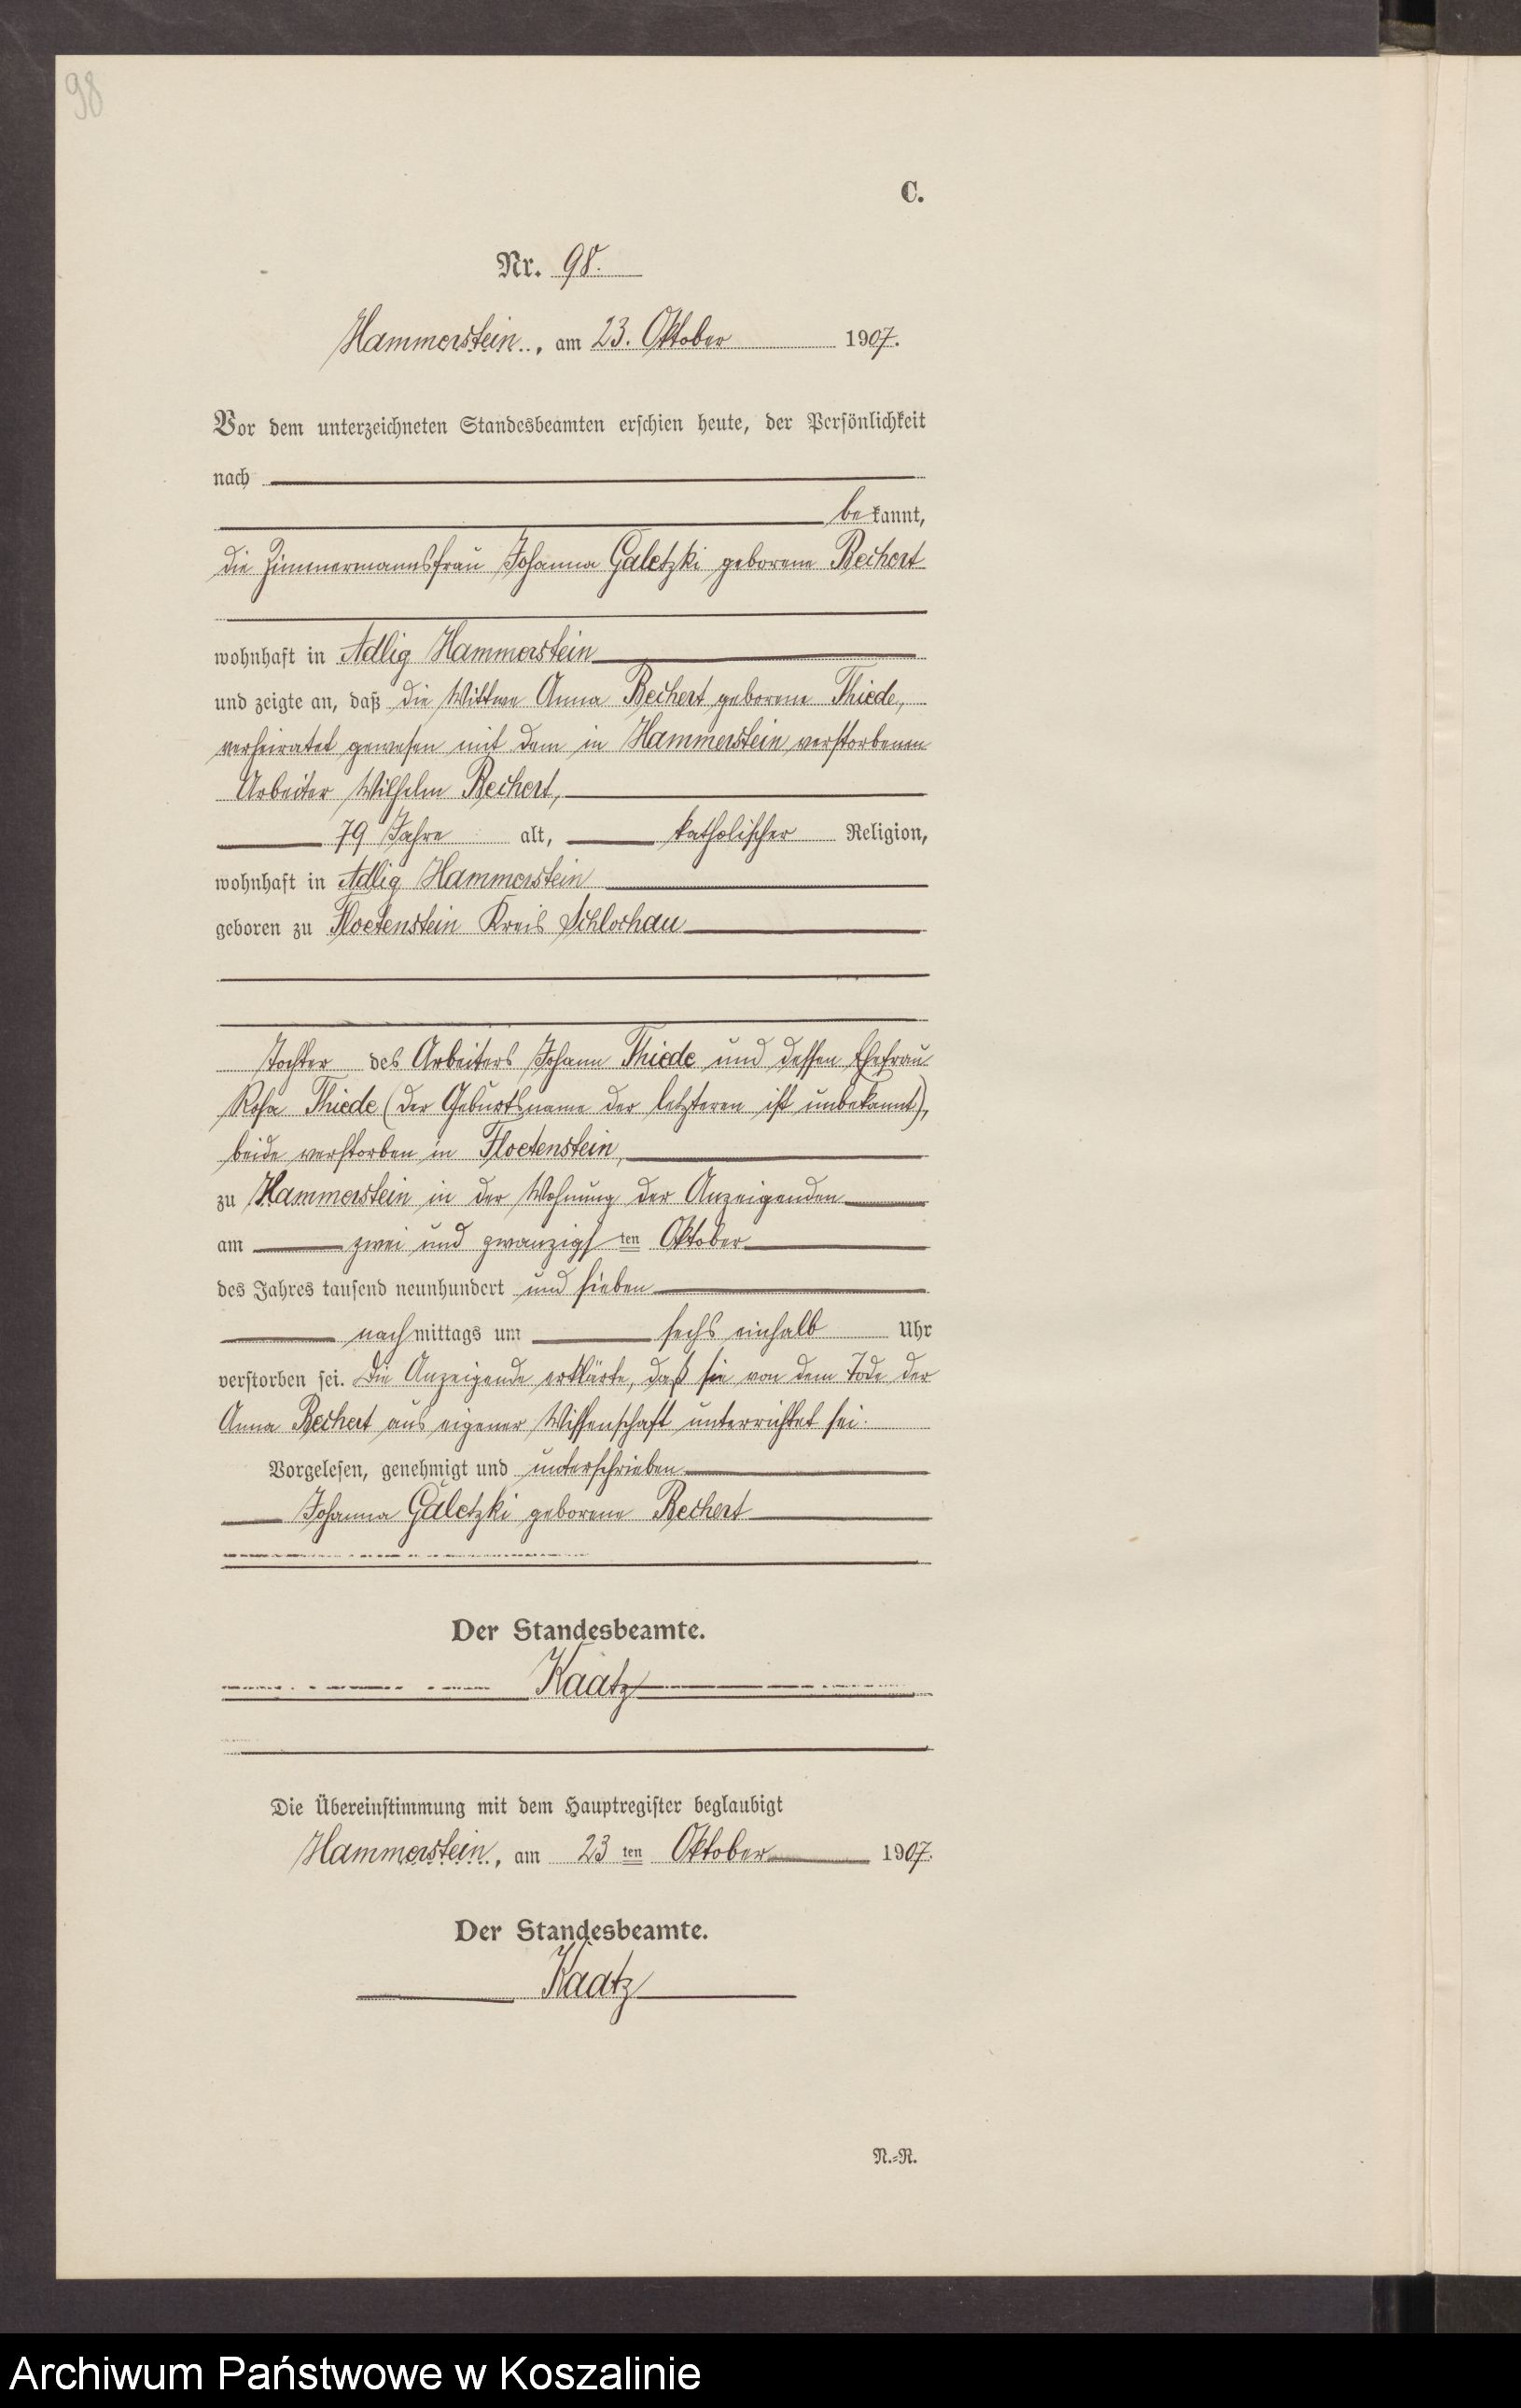 98
C.
Nr. 98.
Hammerstein, am 23. Oktober 1907.
Vor dem unterzeichneten Standesbeamten erschien heute, der Persönlichkeit
nach
bekannt,
die Zimmermannsfrau Johanna Galetzki geborene Bechert
wohnhaft in Adlig Hammerstein
und zeigte an, daß die Wittwe Anna Bechert geborene Thiede,
verheiratet gewesen mit dem in Hammerstein verstorbenen
Arbeiter Wilhelm Bechert,
79 Jahre alt, katholischer Religion,
wohnhaft in Adlig Hammerstein
geboren zu Floetenstein Kreis Schlochau
Tochter des Arbeiters Johann Thiede und dessen Ehefrau
Rosa Thiede (der Geburtsname der letzteren ist unbekannt),
beide verstorben in Floetenstein,
zu Hammerstein in der Wohnung der Anzeigenden
am zwei und zwanzigsten Oktober
des Jahres tausend neunhundert und sieben
nachmittags um sechs einhalb Uhr
verstorben sei. Die Anzeigende erklärte, daß sie von dem Tode der
Anna Bechert aus eigener Wissenschaft unterrichtet sei.
Vorgelesen, genehmigt und unterschrieben
Johanna Galetzki geborene Bechert
Der Standesbeamte.
Kaatz
Die Übereinstimmung mit dem Hauptregister beglaubigt
Hammerstein, am 23 ten Oktober 1907.
Der Standesbeamte.
Kaatz
N.-R.
Archiwum Państwowe w Koszalinie